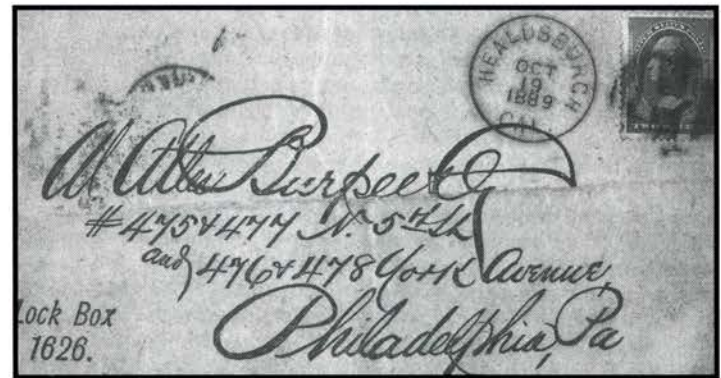 HEALDSBURGH
OCT
19
1889
CAL.
W Atlee Burpee & Co
#475 & 477 N. 5th St
and 476 & 478 York Avenue,
Philadelphia, Pa
Lock Box
1626.